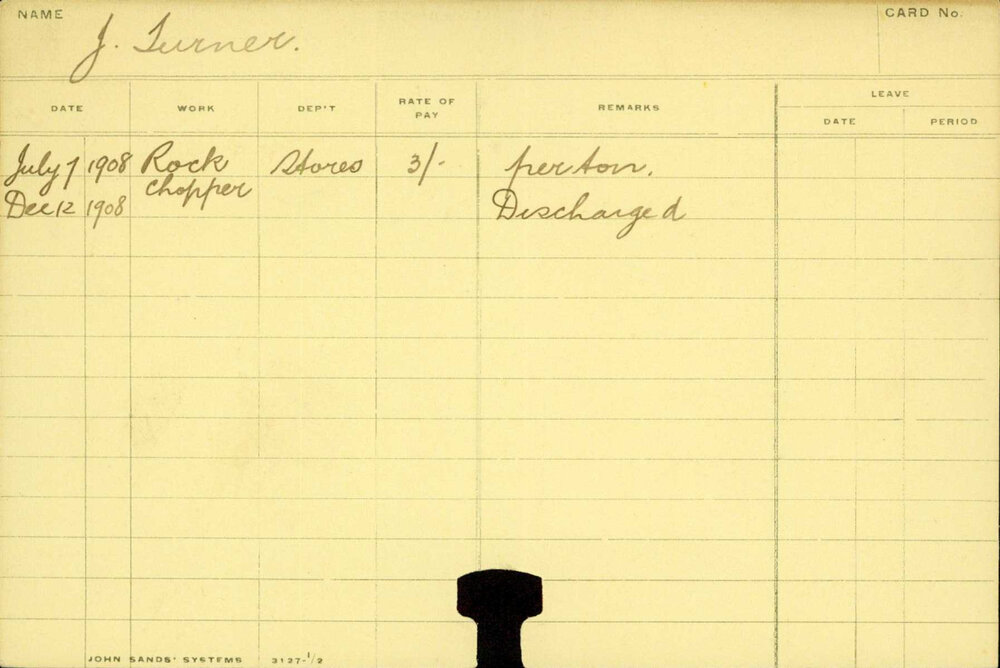 NAME
CARD No.
J. Turner.
DATE WORK DEP'T RATE OF PAY REMARKS LEAVE
DATE PERIOD
July 7 1908 Rock chopper Stores 3/- per ton.
Dec 12 1908 Discharged
JOHN SANDS' SYSTEMS 3127-1/2